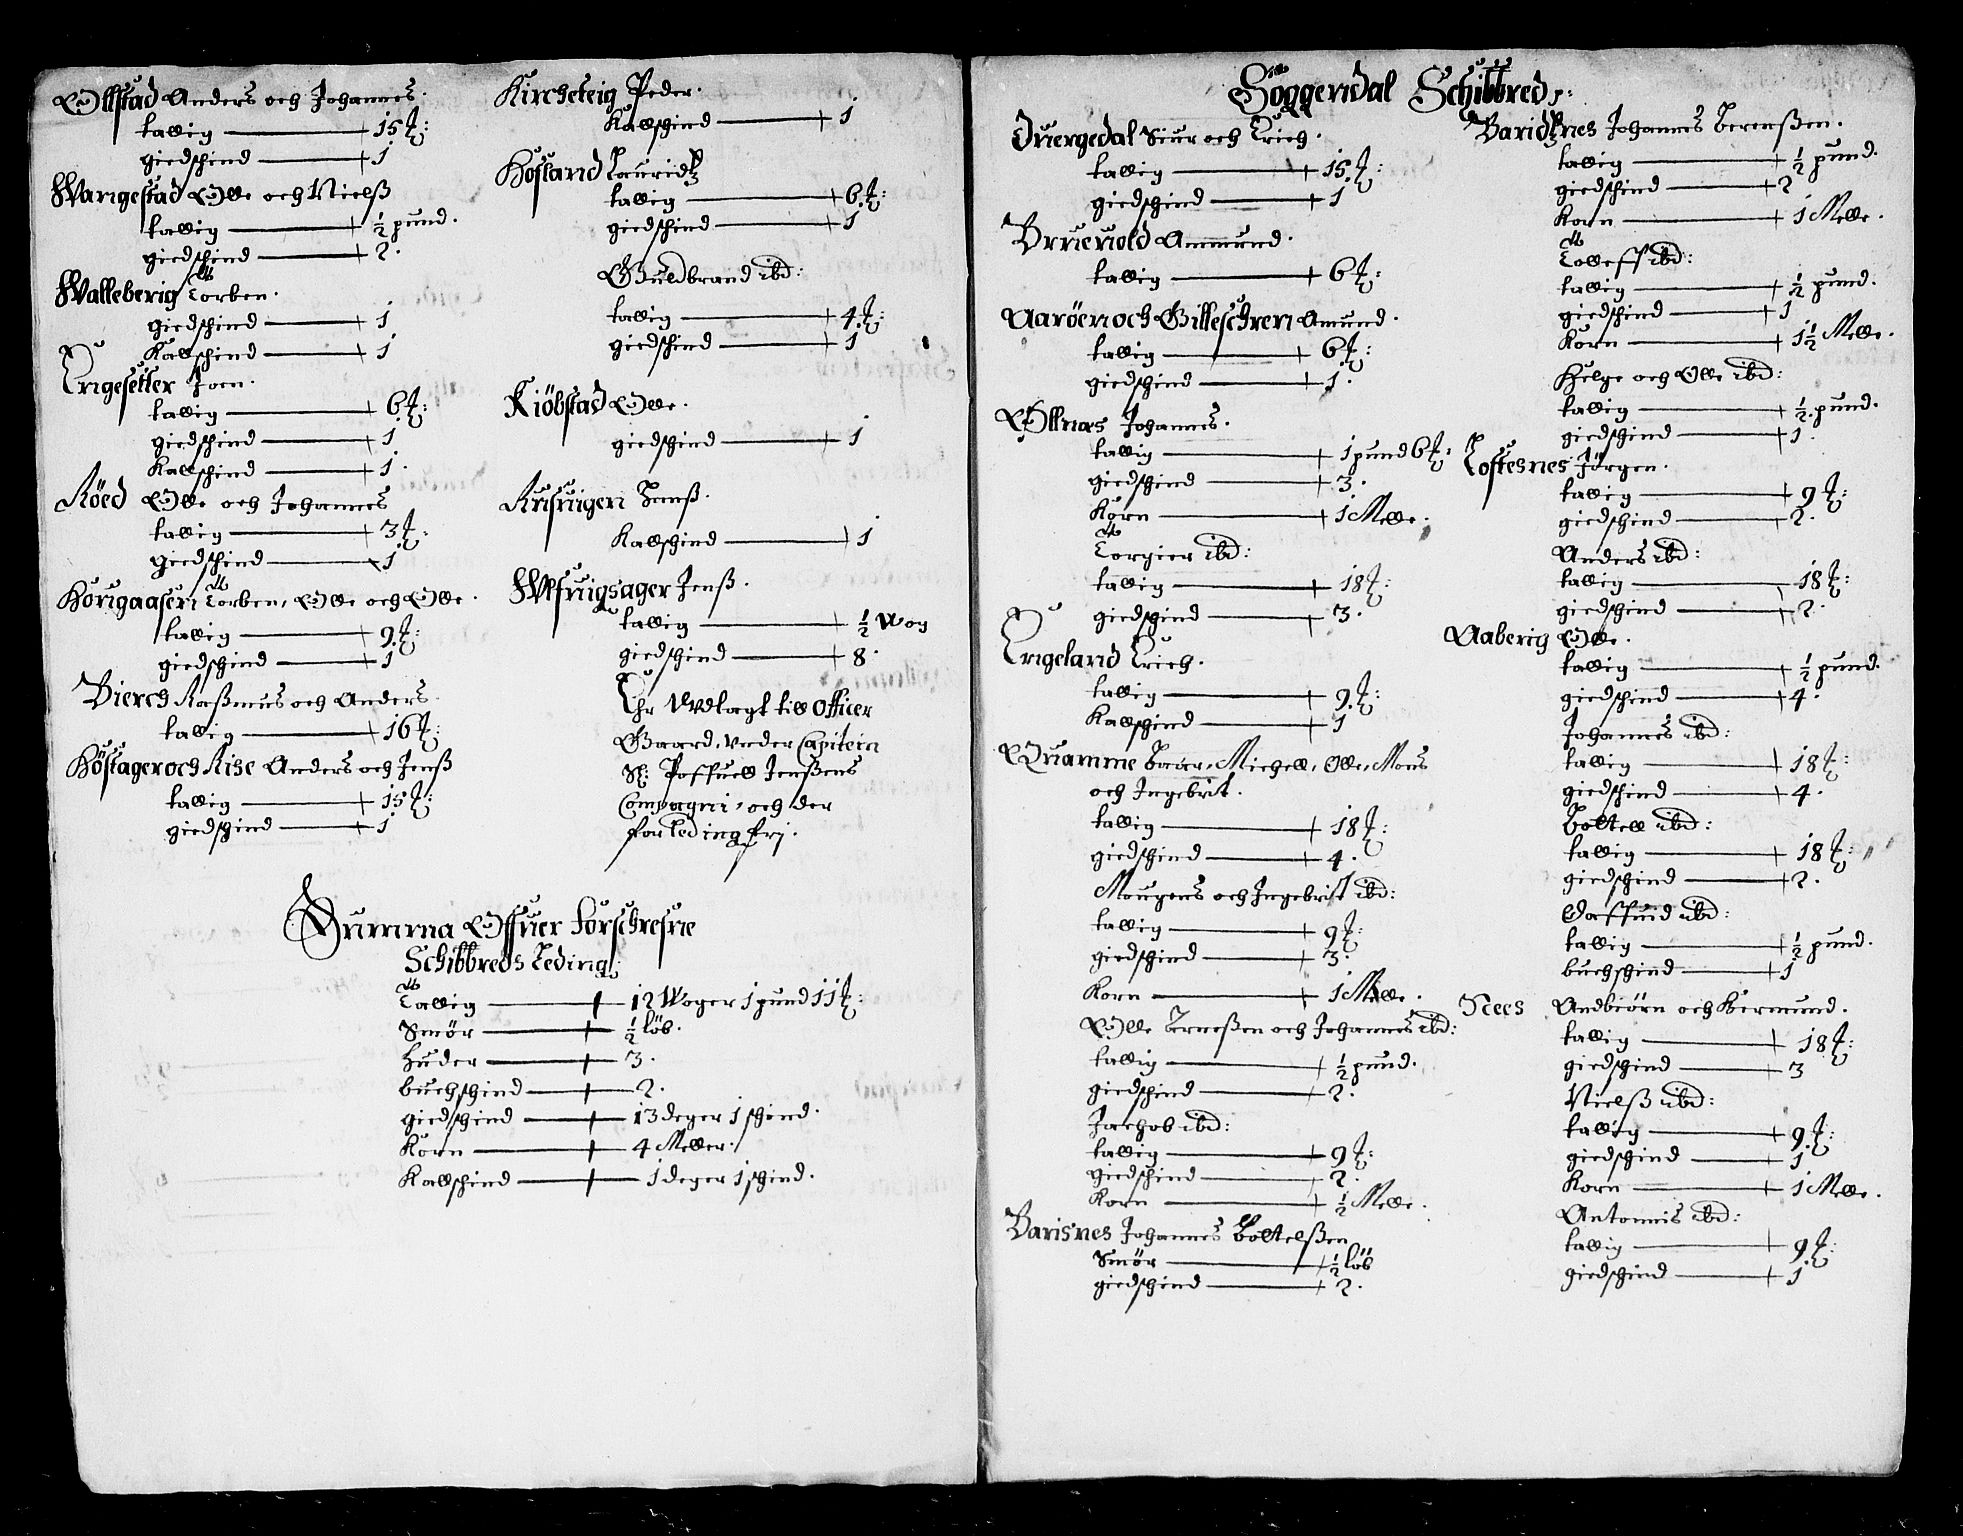 Ølstad Anders och Johannes.
tallig 15 ℔:
giedschind 1
Wangestad Olle och Nielß
tallig ½ pund.
giedschind 2.
Walleberig Torben.
giedschind 1
Kalfschind 1
Engesetter Joen.
tallig 6 ℔:
giedschind 1
Kalfschind 1.
Röed Olle och Johannes
tallig 3 ℔:
giedschind 1
Hörigaasen Torben, Olle och Olle.
tallig 9 ℔:
giedschind 1
Bierch Raßmus och Anders
tallig 16 ℔:
Höstager och Rise Anders och Jenß
tallig 15 ℔:
giedschind 1
Kircheteig Peder.
Kalfschind 1
Hösland Lauridtz
tallig 6 ℔:
giedschind 1
Guldbrand ibd:
tallig 4 ℔:
giedschind 1
Kiöbstad Olle.
giedschind 1
Jenß.
Kalfschind 1
Jenß.
tallig ½ Wog
giedschind 8.
Ehr Wdlagt till Officer
Gaard, vnder Capitein
Sl: Poffuell Jenßens
Compagni, och der
for leding frj.
Summa Offuer forschrefne
Schibbreds Leding
Tallig 12 Woger 1 pund 11 ℔:
Smör ½ löb.
huder 3.
buchschind 2.
giedschind 13 deger 1 schind.
Korn 4 Meller.
Kalfschind 1 deger 1 schind.
Söggendal Schibbred
Duergedal Siur och Erich.
tallig 15 ℔:
giedschind 1
Ammund.
tallig 6 ℔:
Aaröen och Gilleschreen Amund.
tallig 6 ℔:
giedschind 1.
Ølnæs Johannes.
tallig 1 pund 6 ℔:
giedschind 3.
Korn 1 Melle.
Torgier ibd:
tallig 18 ℔:
giedschind 3
Engeland Erich.
tallig 9 ℔:
Kalfschind 1
Quamme Michell, Olle, Mons
och Ingebrit.
tallig 18 ℔:
giedschind 4.
Mougens och Ingebrit ibd:
tallig 9 ℔:
giedschind 3.
Korn 1 Melle.
Olle och Johannes ibd:
tallig ½ pund.
giedschind 2.
Jachob ibd:
tallig 9 ℔:
giedschind 2.
Korn ½ Melle.
Barisnes Johannes Botelßen
Smör ½ löb
giedschind 2.
Baridsnes Johannes Berenßen.
tallig ½ pund.
giedschind 2
Korn 1 Melle.
Tolleff ibd:
tallig ½ pund.
giedschind 1
Korn 1½ Melle.
Helge och Olle ibd:
tallig ½ pund.
giedschind 1.
Loftesnes Jörgen.
tallig 9 ℔:
giedschind 2.
Anders ibd:
tallig 18 ℔:
giedschind 2.
Aaberig Olle.
tallig ½ pund.
giedschind 4.
Johannes ibd:
tallig 18 ℔:
giedschind 4.
Bottell ibd:
tallig 18 ℔:
giedschind 2.
Daffuid ibd:
tallig ½ pund.
buchschind 1
Nees Andbiörn och Hermund.
tallig 18 ℔:
giedschind 3
Nielß ibd:
tallig 9 ℔:
giedschind 1
Korn 1 Melle.
Antonnis ibd:
tallig 9 ℔:
giedschind 1